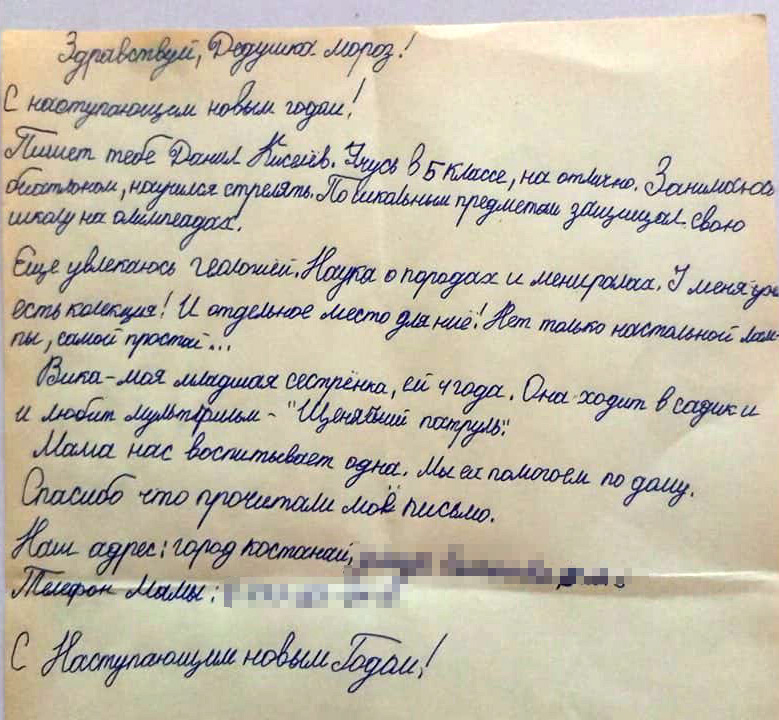 Здравствуй, Дедушка мороз!
С наступающем новым годом!
Пишет тебе Данил Киселёв. Учусь в 5 классе, на отлично. Занимаюсь
биатлоном, научился стрелять. По школьным предметам защищал свою
школу на олимпеадах.
Ещё увлекаюсь геологией. Наука о породах и мениралах. У меня уже
есть колекция! И отдельное место для неё! Нет только настольной лам-
пы, самой простой...
Вика-моя младшая сестрёнка, ей 4 года. Она ходит в садик и
и любит мультфильм - "Щенячий патруль".
Мама нас воспитывает одна. Мы ей помогаем по дому.
Спасибо что прочитали моё письмо.
Наш адрес: город костанай,
Телефон Мамы:
С Наступающим новым Годом!